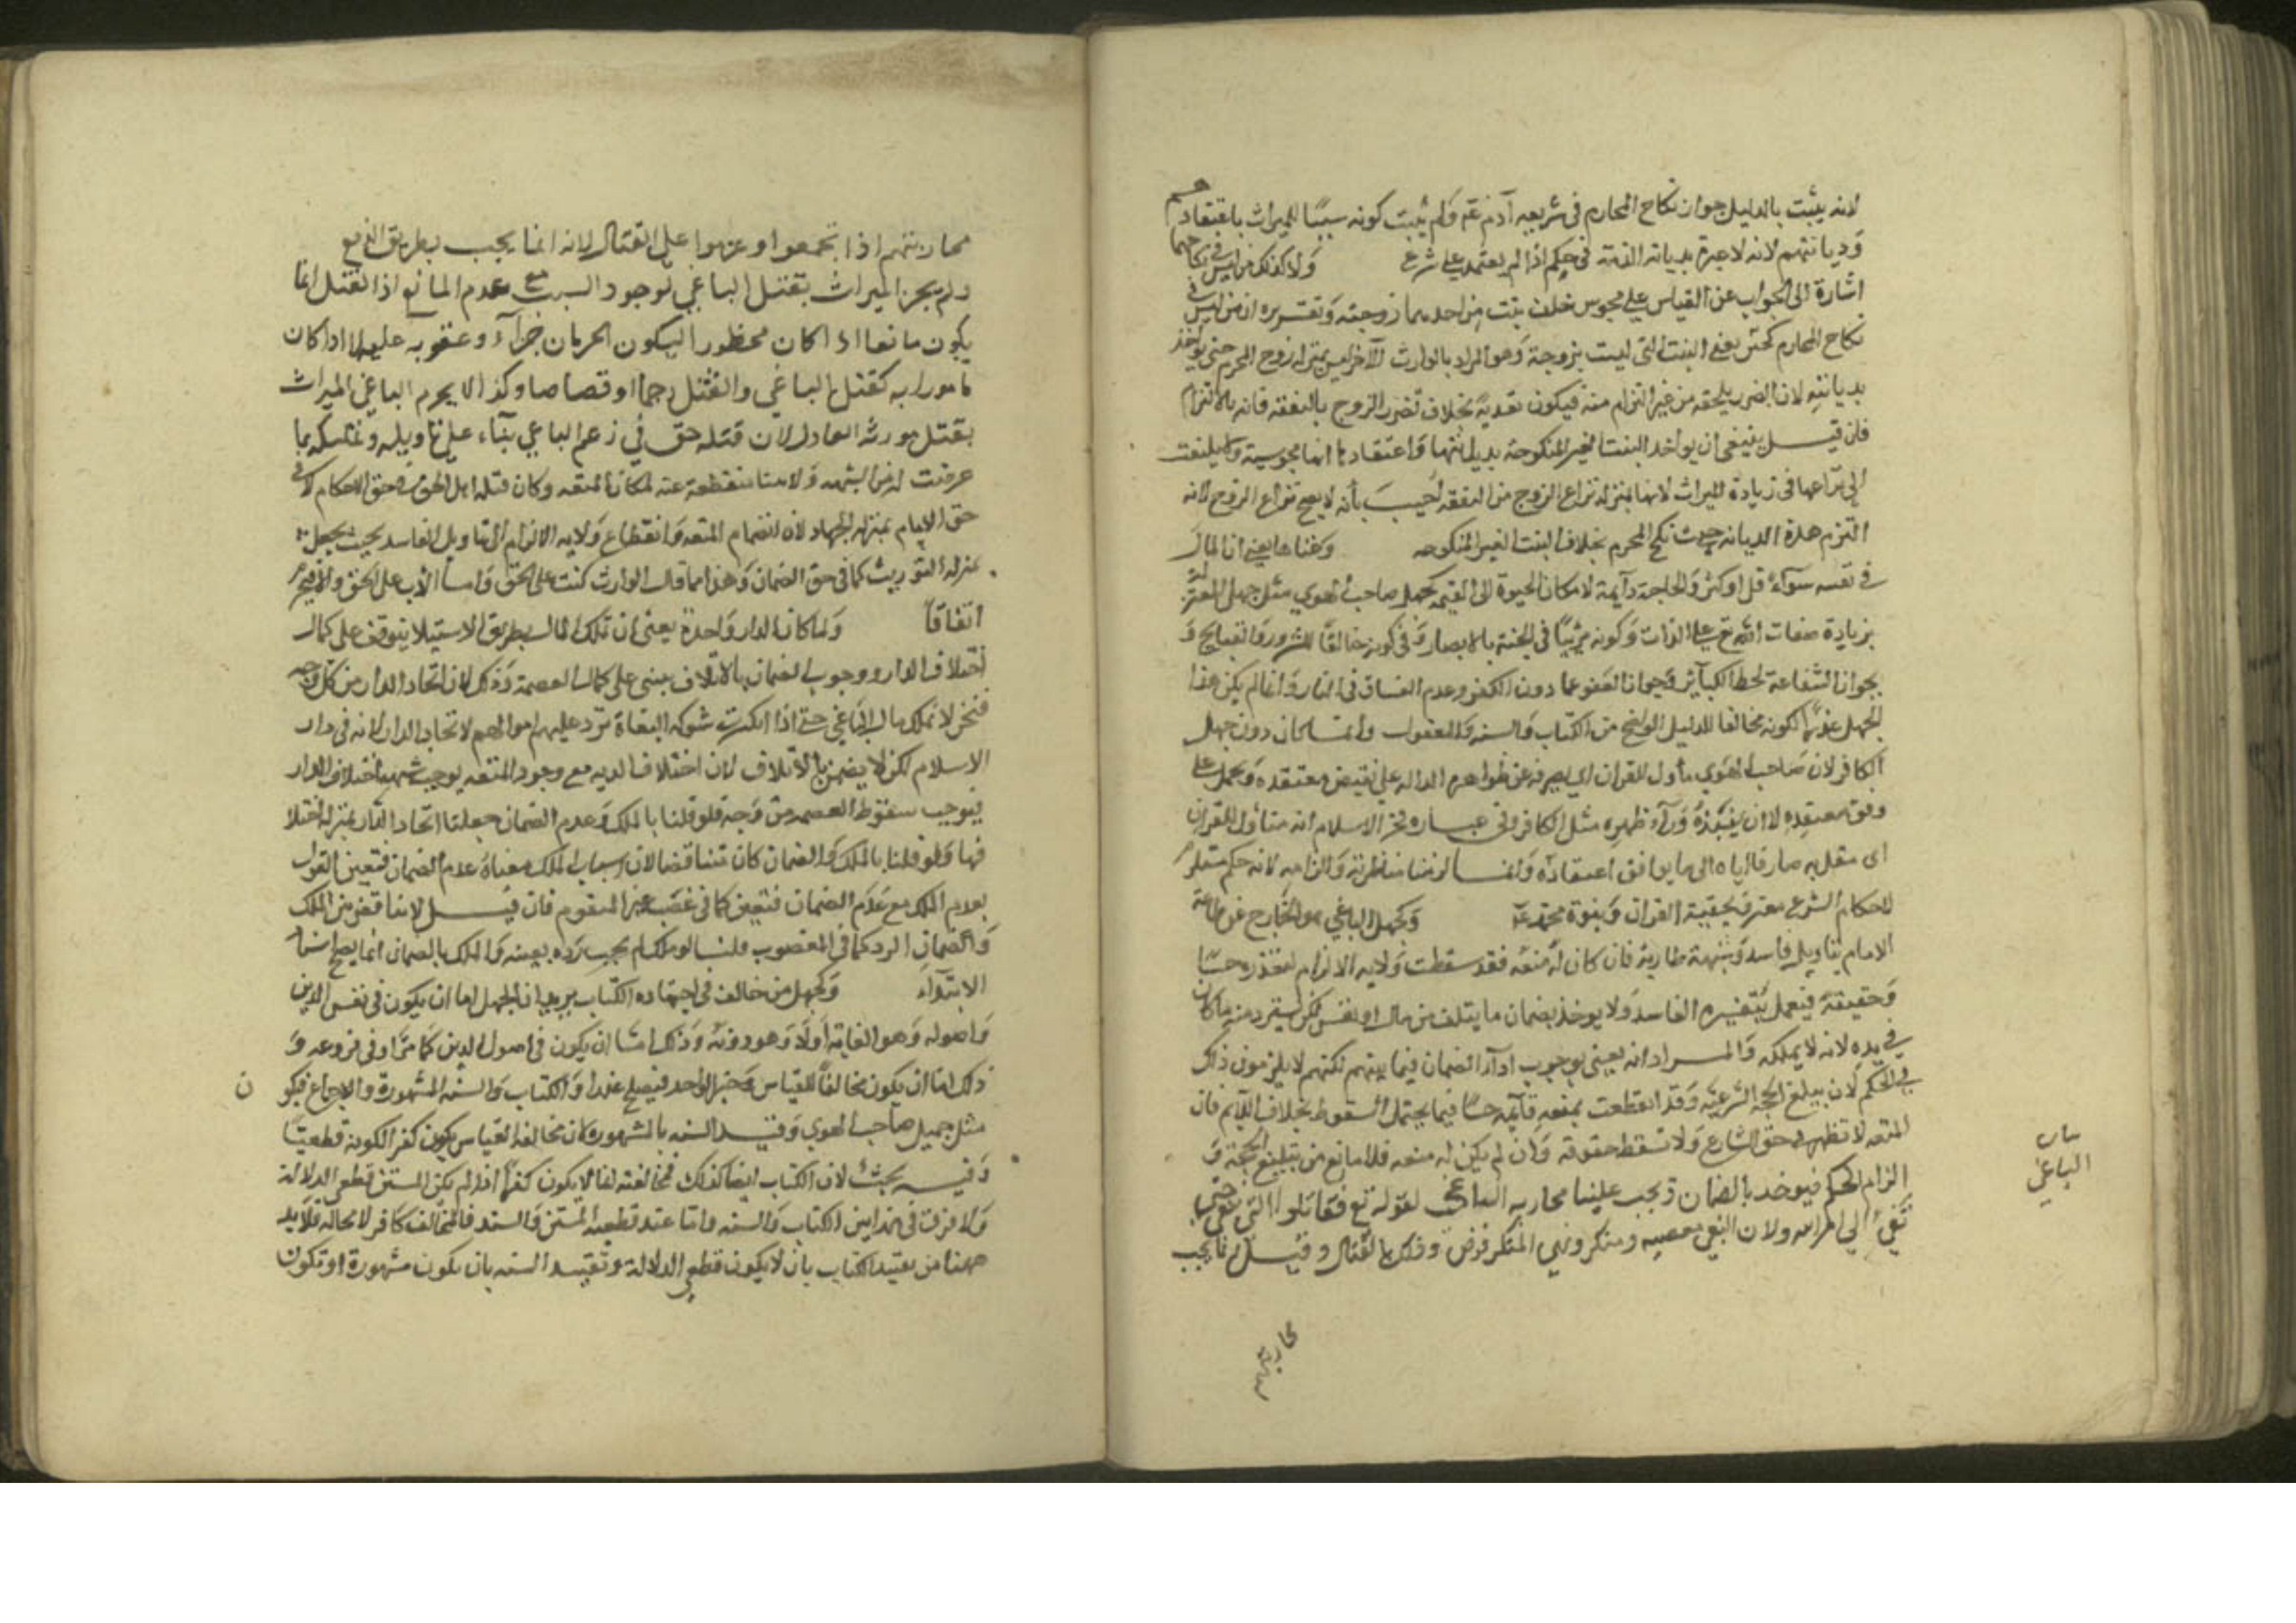 لانه يثبت بالدليل جواز نكاح المحارم فى شريعه آدم عم ولم يثبت كونه سببًا للميراث باعتقادهم
وديانتهم لانه لا عبرة بديانة الذمى فى حكم اذا لم يعتمد على شرع ولا كذلك من ليس فى نكاحهما
اشارة الى الجواب عن القياس على مجوس خلف بنتين احديهما زوجته وتقريره ان من ليس فى
نكاح المحارم يعنى البنت التى ليست بزوجة وهو المراد بالوارث الآخر ليس بمنزله زوج المحرم حتى يؤاخذ
بديانته لان الضرر يلحقه من غير التزام منه فيكون تعدية بخلاف تضرر الزوج بالنفقه فانه بالالتزام
فان قيل ينبغى ان يواخذ البنت الغير المنكوحة بديانتها واعتقادها انها مجوسية ولا يلتفت
الى نزاعها فى زيادة الميراث لانها بمنزله نزاع الزوج من النفقه اجيب بأنه لا يصح نزاع الزوج لانه
التزم هذه الديانه حيث نكح المحرم بخلاف البنت الغير المنكوحه
فى نفسه سوآء قل او كثر والحاجة دآيمة كجهل صاحب الهوي مثل جهل المعتزلة
بزيادة صفات الله تع على الذات وكونه مرئيًا فى الجنة بالابصار وفى كونه خالقًا للشرور والقبايح و
بجواز الشفاعة لحط الكبآئر وبجواز العفو عما دون الكفر وعدم الفساق فى النار وانما لم يكن هذا
الجهل عذرًا لكونه مخالفا للدليل الواضح من الكتاب والسنه والمعقول وانما كان دون جهل
الكافر لان صاحب الهوي مأول للقران اي يصرفه عن ظواهره الداله على نقيض معتقده ويحمله على
وفق معتقده لا ان ينبذه ورآء ظهره مثل الكافر وفى عبارة فخر الاسلام انه متأول للقرآن
اى متقلد به صارفا اياه الى ما يوافق اعتقاده وانما لزمنا مناظرته والزامه لانه حكم ملتزم
للحكام الشرع معترف بحقيه القران وبنبوة محمد عم وكجهل الباغي هو الخارج عن طاعة
الامام بتاويل فاسد وشبهة طارية فان كان له منعه فقد سقطت ولايه الالزام لتعذره حسًا
وحقيقة فيعمل بتفسيره الفاسد ولا يوخذ بضمان ما يتلف من مال او نفس لكن يسترد منه ما كان
فى يده لانه لا يملكه والمراد انه يعنى بوجوب ادآء الضمان فيما بينهم لكنهم لا يلزمون ذلك
فى الحكم لان تبليغ الحجه الشرعيه وقد انقطعت بمنعه قآيمه حسًا فيما يحتمل السقوط بخلاف الاثم فان
المنعه لا تظهر فى حق الشارع ولا تسقط حقوقه وان لم يكن له منعه فلا مانع من تبليغ الحجة و
الزام الحكم فيوخد بالضمان ويجب علينا محاربه الباغي لقوله تع فقاتلوا التى تبغى حتى
تفئ الي امر الله ولان البغى معصيه ومنكر ونهي المنكر فرض وذلك بالقتال وقيل انما يجب
بيان
الباغى
محاربتهم
محاربتهم اذا تجمعوا وعزموا على القتال لانه انما يجب بطريق الدفع
ولم يحرم الميراث بقتل الباغي لوجود السبب مع عدم المانع اذ القتل انما
يكون مانعا اذا كان محظورا ليكون الحرمان جزآء وعقوبه عليه اما اذا كان
مامورا به كقتل الباغي والقتل رجما او قصاصا وكذا لا يحرم الباغي الميراث
بقتل مورثه العادل لان قتله حق في زعم الباغي بنآء على تاويله وتمسكه بما
عرضت له من الشبهه ولايتنا منقطعة عنه لمكان المنعه وكان قتله اهل الحق فى حق الاحكام لا فى
حق الاثام بمنزله الجهاد لان انضمام المنعه وانقطاع ولايه الالزام الى التاويل الفاسد
بمنزله التوريث كما فى حق الضمان وهذا مما قال الوارث كنت على الحق وانا الآن على الحق
اتفاقًا ولما كان الدار واحدة يعنى ان تملك المال بطريق الاستيلا يتوقف على كمال
اختلاف الدار ووجوب الضمان بالاتلاف يبنى على كمال العصمة وذلك لان اتحاد الدار من كل وجه
فنحن لا نملك مال الباغي حتى اذا انكسرت شوكه البغاة ترد عليهم اموالهم لاتحاد الدار لانه فى دار
الاسلام لكن لا يضمن بالاتلاف لان اختلاف الديه مع وجود المنعه يوجب شبهة اختلاف الدار
فيوجب سقوط العصمه من وجه فلو قلنا بالملك وعدم الضمان جعلنا اتحاد الدار بمنزله اختلا
فها ولو قلنا بالملك والضمان كان تناقضا لان اسباب الملك معناه عدم الضمان فتعين القول
بعدم الملك مع عدم الضمان فتعين كما فى غصب غير المتقوم فان قيل لا تناقض من الملك
والضمان الرد كما فى المغصوب قلنا لو ملك لم يجب رده بعينه والملك بالضمان انما يصلح
الابتدآء وكجهل من خالف فى اجتهاده الكتاب يريد ان الجهل اما ان يكون فى نفس الدين
واصوله وهو الغاية أولًا وهو دونه وذلك اما ان يكون فى اصول الدين كما مر او فى فروعه و
ذلك اما ان يكون مخالفًا للقياس وخبر الواحد فيصلح عذرا والكتاب والسنه المشهورة والاجماع فيكو
ن
مثل جهل صاحب الهوي وقيد السنه بالشهورة لان مخالفة القياس يكون كفر الكونه قطعيتًا
وفيه بحث لان الكتاب ايضا كذلك فمخالفته لما لا يكون كفرًا اذا لم يكن المتن قطعى الدلالة
ولا فرق فى هذا بين الكتاب والسنه واما عند قطعية المتن والسند فالمخالف كافر لا محالة فلا بد
ههنا من تقييد الكتاب بان لا يكون قطعى الدلالة وتقييد السنه بان يكون مشهورة او تكون